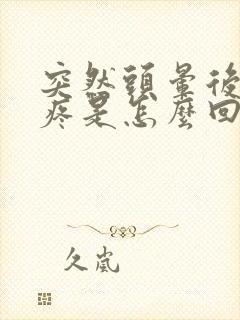 突然頭暈後
疼是怎麼回
久嵐